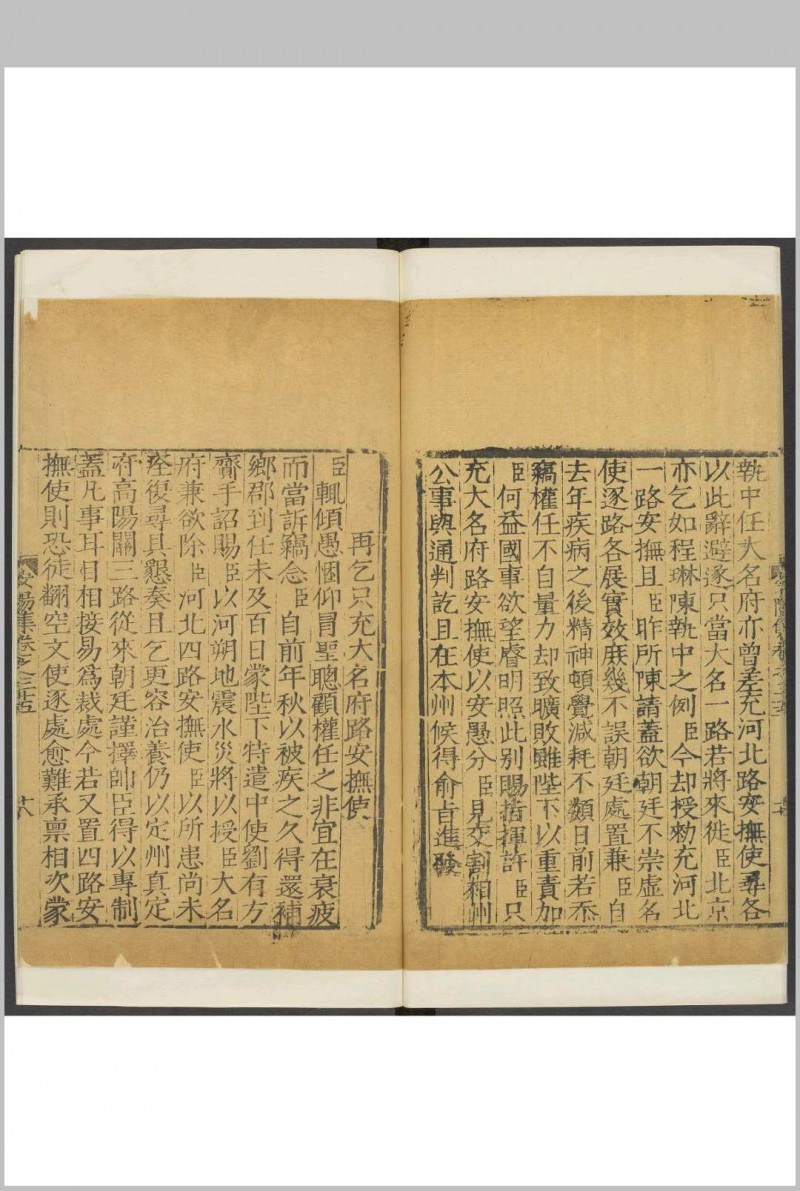 執中任大名府亦曾差充河北路安撫使尋各
以此辭避遂只當大名一路若將來徙臣北京
亦乞如程琳陳執中之例臣今却授勑充河北
一路安撫且臣昨所陳請蓋欲朝廷不崇虛名
使逐路各展實效庶幾不誤朝廷處置兼臣自
去年疾病之後精神頓覺減耗不類日前若忝
竊權任不自量力却致曠敗雖陛下以重責加
臣何益國事欲望聖明照此别賜指揮許臣只
充大名府路安撫使以安愚分臣見交割相州
公事與通判訖且在本州候得俞旨進發
再乞只充大名府路安撫使
臣輒傾愚悃仰冒聖聰顧權任之非宜在衰疲
而當訴竊念臣自前年秋以被疾之久得還補
鄉郡到任未及百日蒙陛下特遣中使劉有方
齎手詔賜臣以河朔地震水災將以授臣大名
府兼欲除臣河北四路安撫使臣以所患尚未
痊復尋具懇奏且乞更容治養仍以定州真定
府高陽關三路從來朝廷謹擇帥臣得以專制
蓋凡事耳目相接易爲裁處今若又置四路安
撫使則恐徒翻空文使逐處愈難承稟相次蒙
安陽集卷之三十五
十八